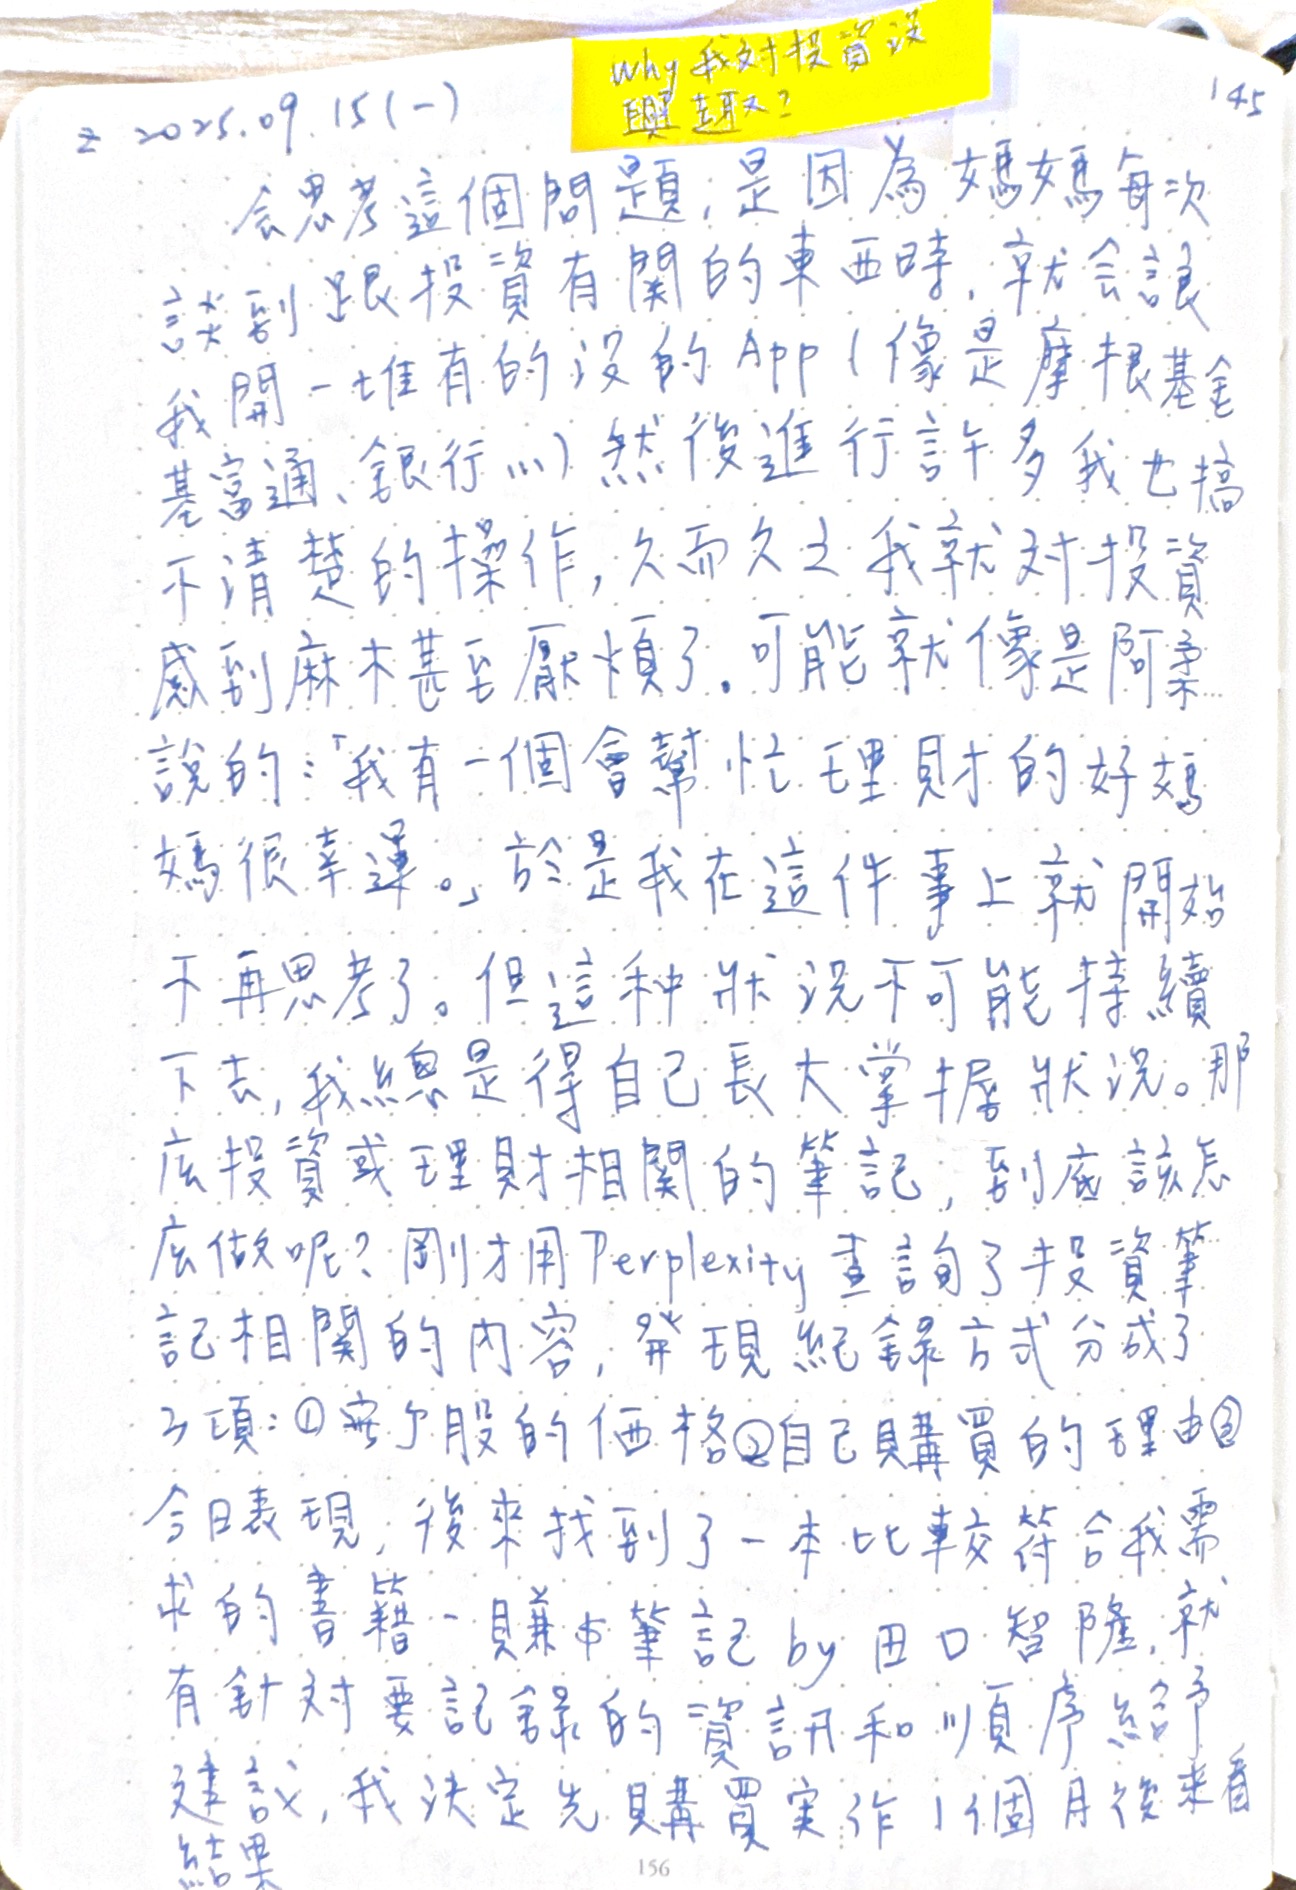 why 我对投資没
興趣?
2025.09.15(一)
145
会思考這個問題,是因為媽媽每次
談到跟投資有関的東西時,就会讓
我開一堆有的没的App(像是摩根基金
基富通、銀行...)然後進行許多我也搞
不清楚的操作,久而久之我就对投資
感到麻木甚至厭煩了。可能就像是阿柔
說的:「我有一個會幫忙理財的好媽
媽很幸運。」於是我在這件事上就開始
不再思考了。但這种狀況不可能持續
下去,我總是得自己長大掌握狀況。那
庅投資或理財相関的筆記,到底該怎
庅做呢?剛才用Perplexity查詢了投資筆
記相関的内容,発現紀錄方式分成了
3項:①零股的価格②自己購買的理由③
今日表現,後來找到了一本比較符合我需
求的書籍-賺筆記by田口智隆,就
有針対要記錄的資訊和順序給予
建議,我決定先購買実作1個月後來看
結果
156